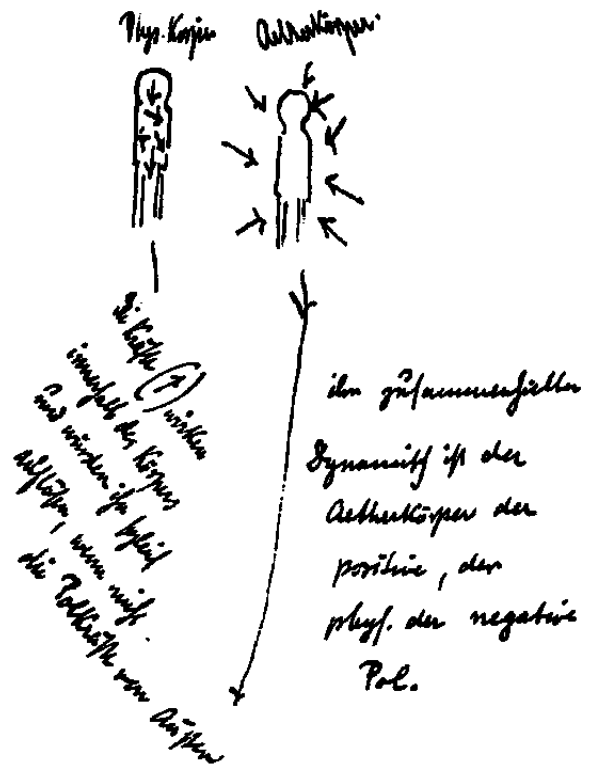 Phys. Körper
Aetherkörper.
die Kräfte
(↗) wirken
innerhalb des Körpers
und würden ihn gleich
auflösen, wenn nicht
die Kräfte von Außen
ihn zusammenhielten
Dynamisch ist der
Aetherkörper der
positive, der
phys. der negative
Pol.